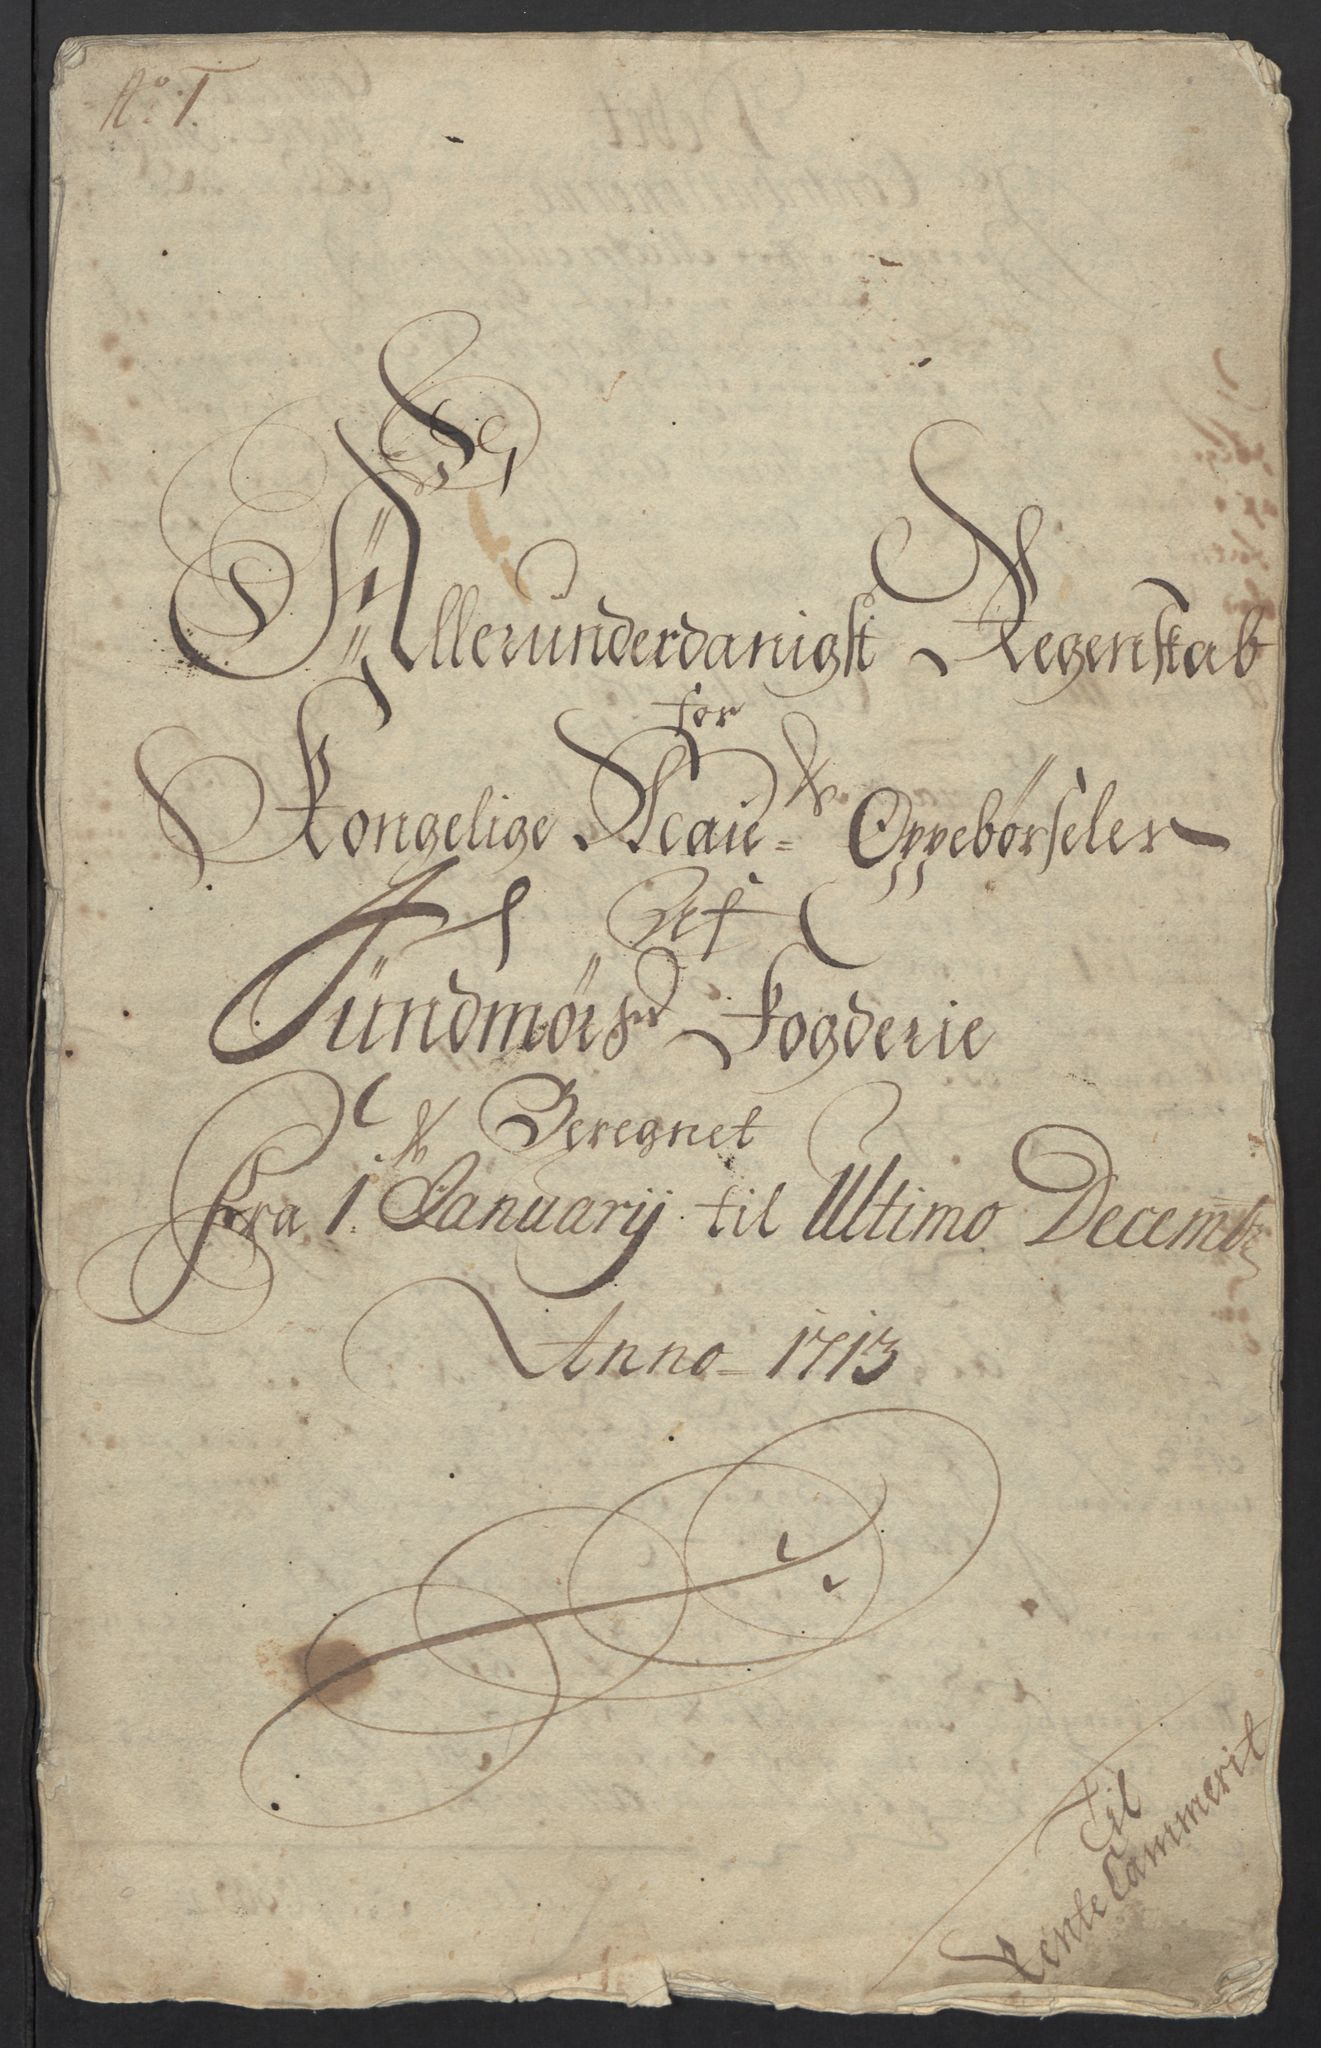 No. 1.
Allerunderdanigst Regenskab
for
Kongelige Scatt= Oppebørseler
Af
Sundmørs Fogderie
Beregnet
fra 1. Januarij til Ultimo Decembr
Anno 1713
Til
Rente Cammerit